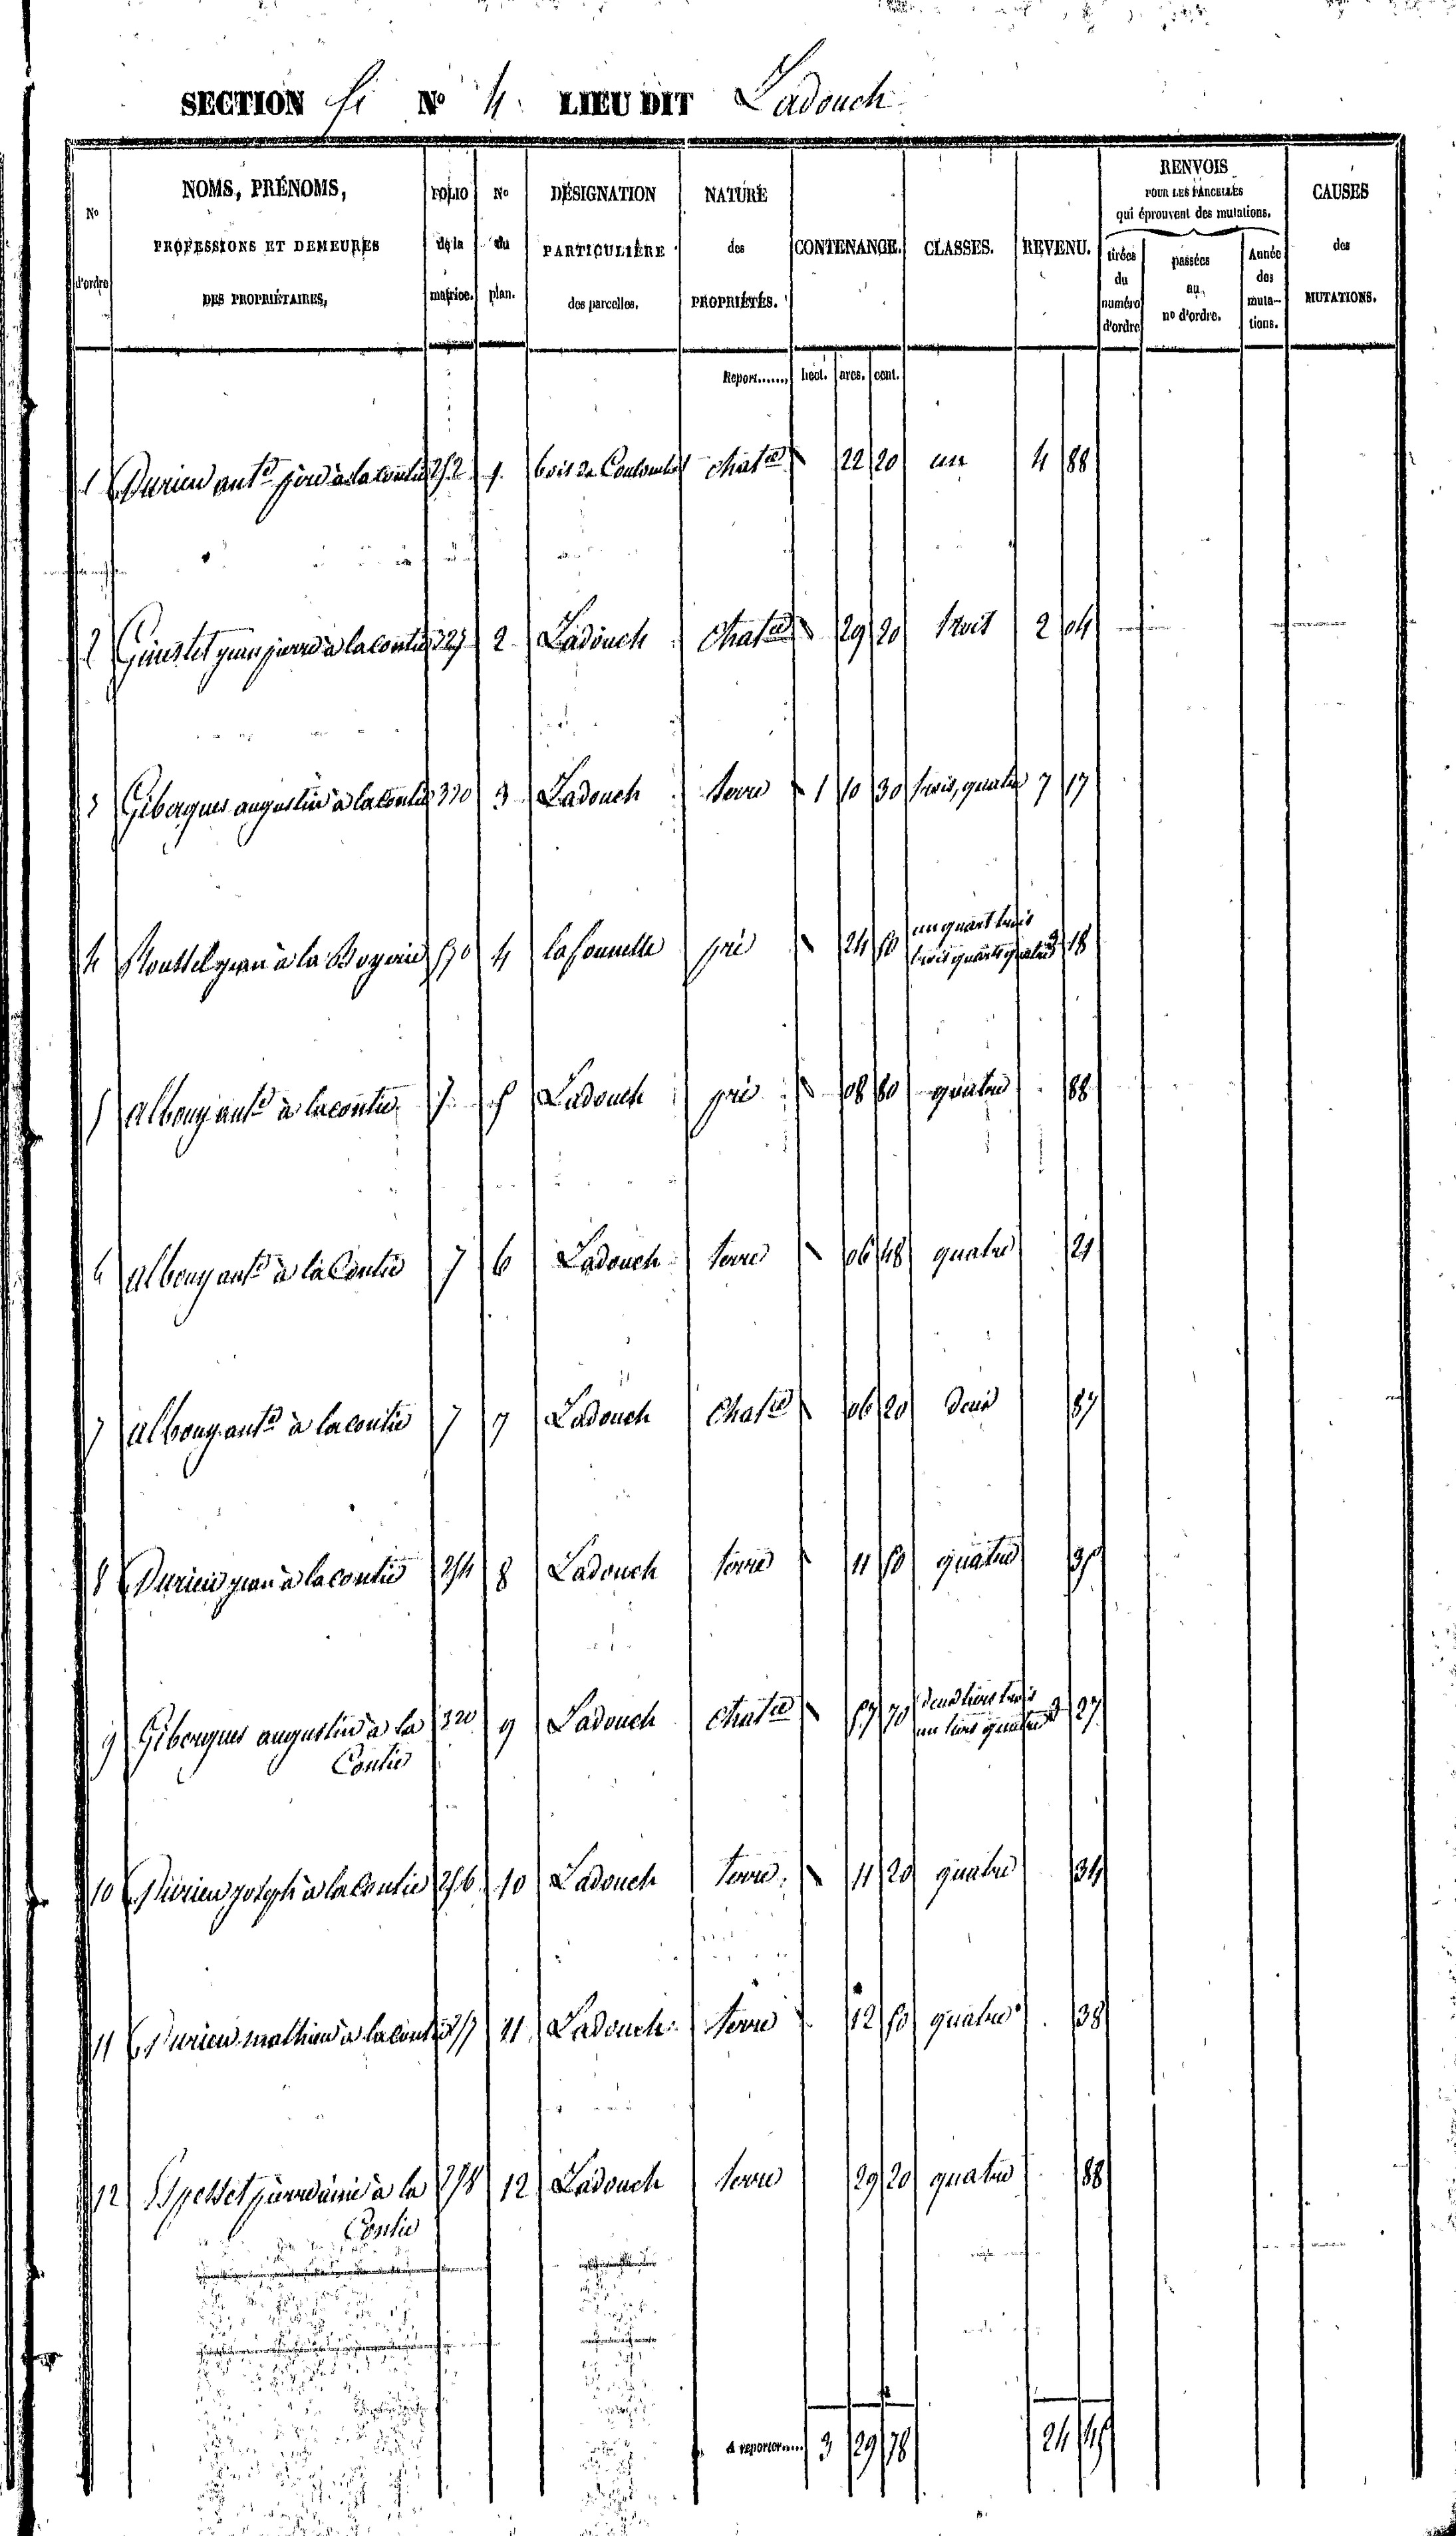 SECTION G N° 4. LIEU DIT Ladouch
N° d'ordre
NOMS, PRÉNOMS, PROFESSIONS ET DEMEURES DES PROPRIÉTAIRES,
FOLIO de la matrice.
N° du plan.
DÉSIGNATION PARTICULIÈRE des parcelles.
NATURE des PROPRIÉTÉS.
CONTENANCE.
CLASSES.
REVENU.
RENVOIS POUR LES PARCELLES qui éprouvent des mutations.
tirées du numéro d'ordre
passées au n° d'ordre.
Année des mutations.
CAUSES des MUTATIONS.
Report...... hect. ares. cent.
1 Durieu antne père à la contie 252 1. bois de chatie 22 20 un 4 88
2 jean pierre à la contie 2 Ladouch chatie 29 20 trois 2 04
3 Gibergues augustin à la contie 320 3 Ladouch terre 1 10 30 trois, quatre 7 17
4 jean à la 4 pré 24 50 un quart trois trois quarts quatre 18
5 albouy antne à la contie 7 5 Ladouch pré 08 80 quatre 88
6 albouy antne à la Contie 7 6 Ladouch terre 06 48 quatre 21
7 albouy antne à la contie 7 7 Ladouch chatie 06 20 deux 87
8 Durieu jean à la contie 254 8 Ladouch terre 11 50 quatre 35
9 Gibergues augustin à la Contie 320 9 Ladouch chatie 57 70 deux tiers trois un tiers quatre 27
10 Durieu joseph à la Contie 256 10 Ladouch terre 11 20 quatre 34
11 Durieu mathieu à la contie 257 11 Ladouch terre 12 50 quatre 38
12 Espesset pierre ainé à la Contie 12 Ladouch terre 29 20 quatre 88
A reporter..... 3 29 78 24 45